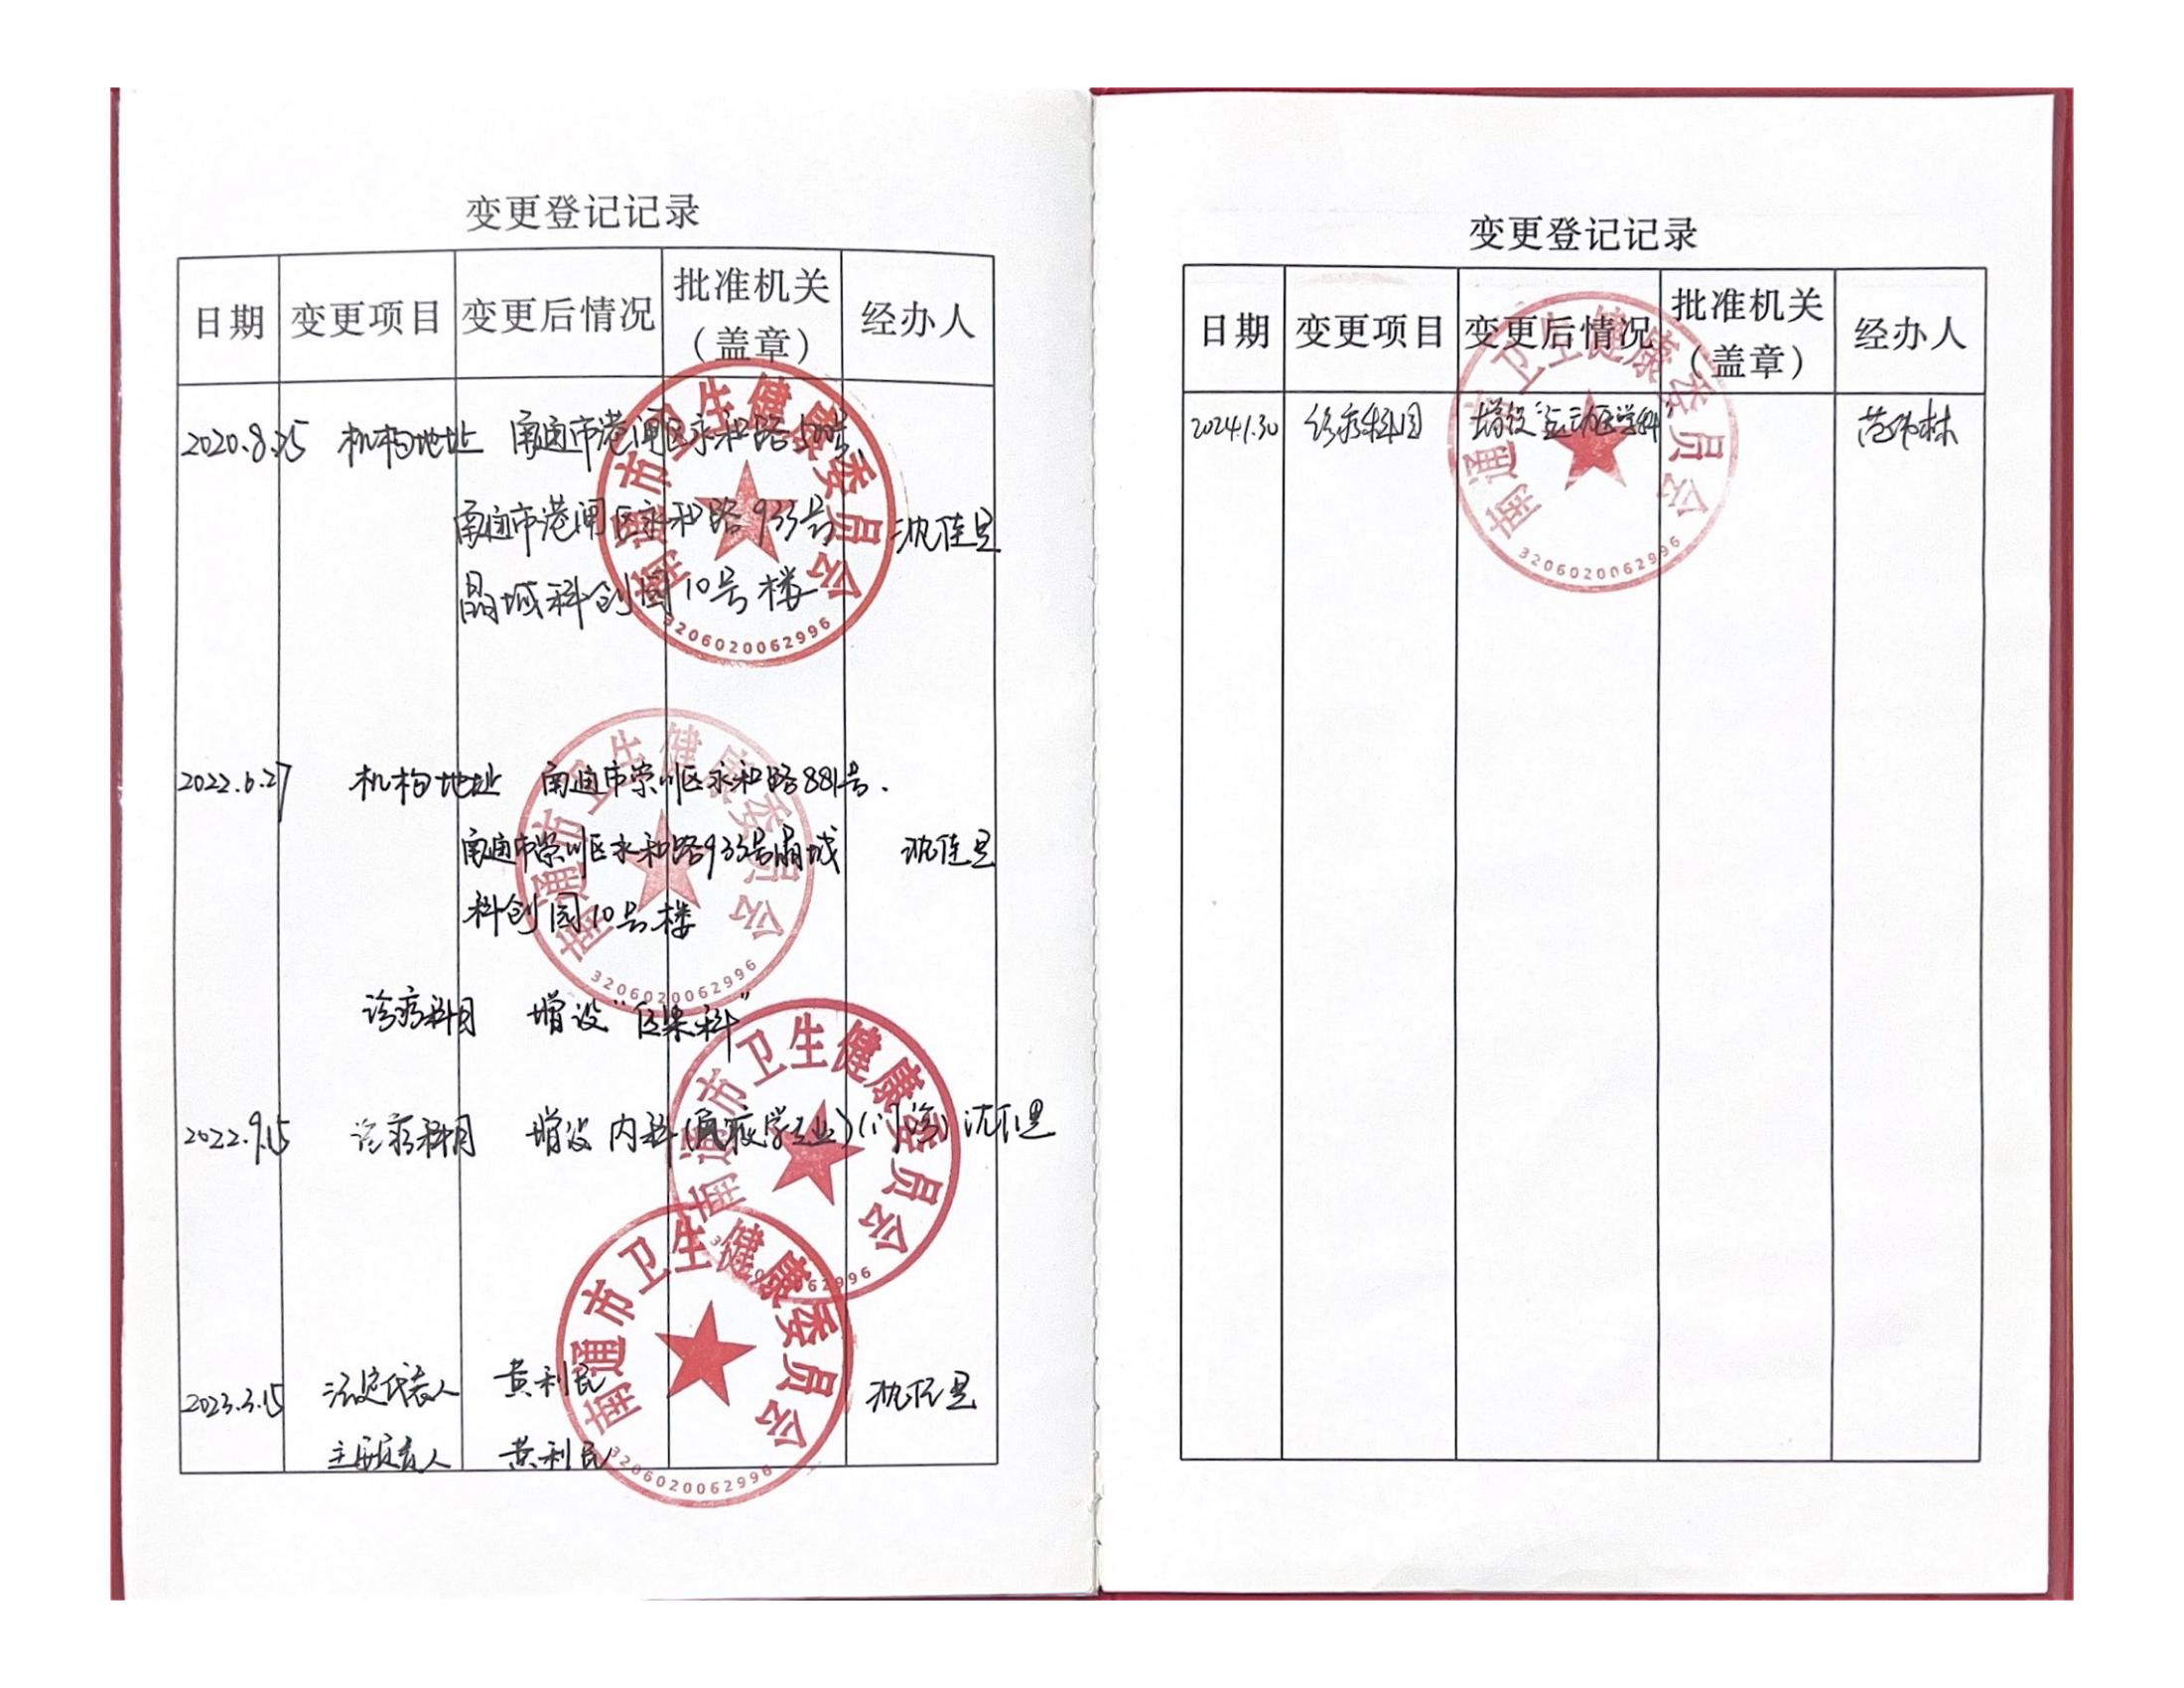 变更登记记录
日期 变更项目 变更后情况 批准机关（盖章） 经办人
2020.8.25 机构地址 南通市港闸区永和路
南通市港闸区永和路933号
晶城科创园10号楼
南通市卫生健康委员会
3206020062996
2022.6.27 机构地址 南通市崇川区永和路881号.
南通市崇川区永和路933号晶城
科创园10号楼
南通市卫生健康委员会
3206020062996
诊疗科目 增设
2022.9.15 诊疗科目 增设 内科(免疫学专业)(门诊)
南通市卫生健康委员会
62996
2023.3.15 法定代表人 黄利民
主要负责人 黄利民
南通市卫生健康委员会
3206020062996
变更登记记录
日期 变更项目 变更后情况 批准机关（盖章） 经办人
2024.1.30 诊疗科目 增设"运动医学科"
南通市卫生健康委员会
3206020062996